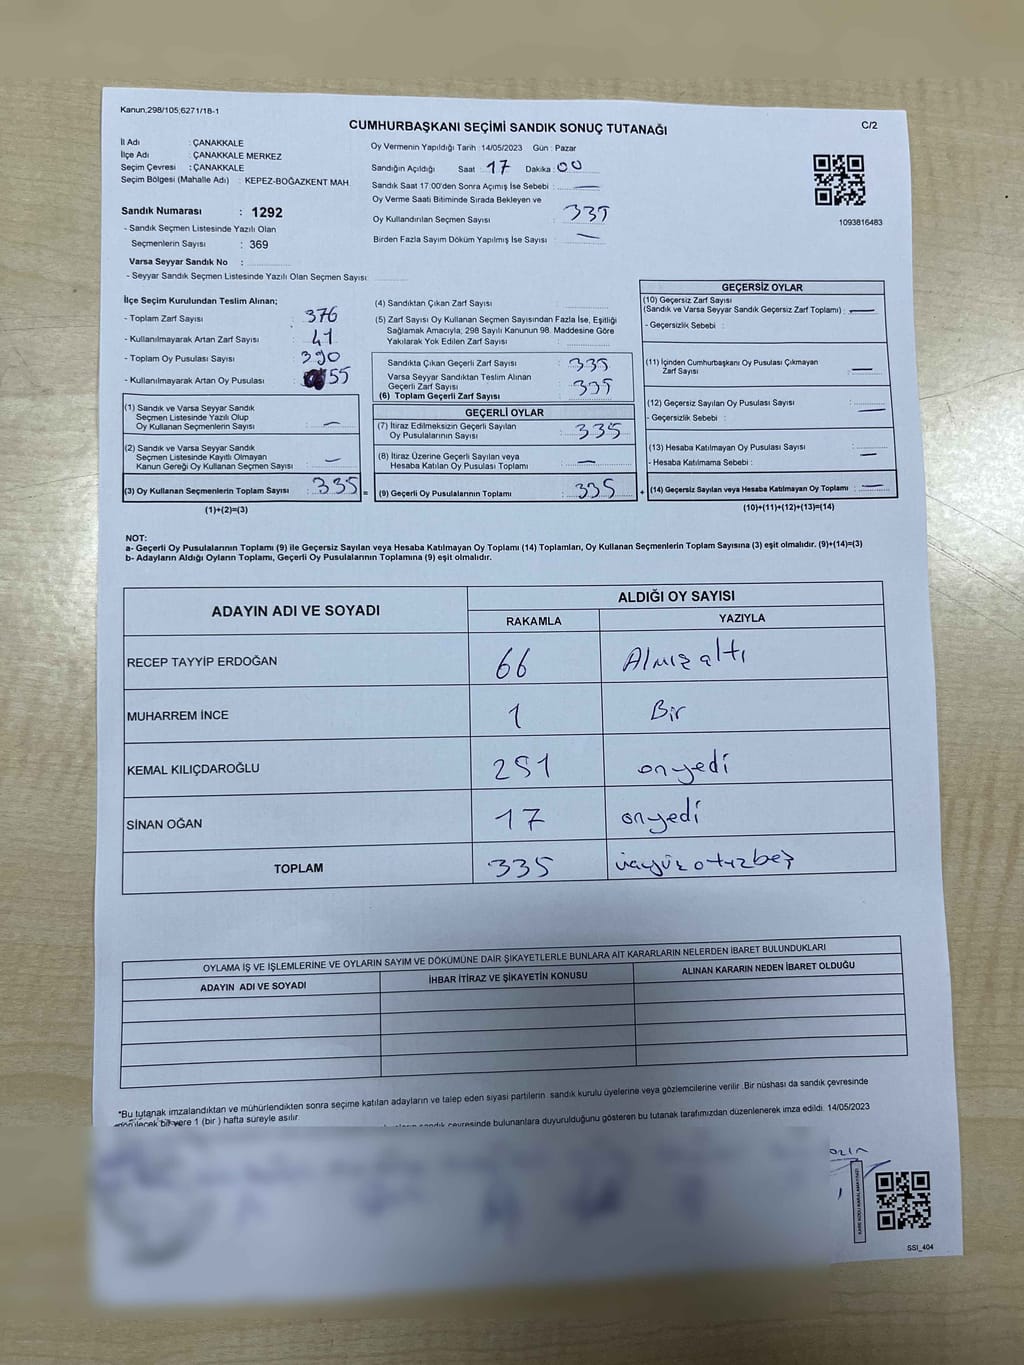 Kanun,298/105;6271/18-1
CUMHURBAŞKANI SEÇİMİ SANDIK SONUÇ TUTANAĞI
C/2
İl Adı : ÇANAKKALE
İlçe Adı : ÇANAKKALE MERKEZ
Seçim Çevresi : ÇANAKKALE
Seçim Bölgesi (Mahalle Adı) : KEPEZ-BOĞAZKENT MAH.
Sandık Numarası : 1292
- Sandık Seçmen Listesinde Yazılı Olan
Seçmenlerin Sayısı : 369
Varsa Seyyar Sandık No :
- Seyyar Sandık Seçmen Listesinde Yazılı Olan Seçmen Sayısı:
Oy Vermenin Yapıldığı Tarih : 14/05/2023 Gün : Pazar
Sandığın Açıldığı Saat : 17 Dakika : 00
Sandık Saat 17:00'den Sonra Açımış İse Sebebi : —
Oy Verme Saati Bitiminde Sırada Bekleyen ve
Oy Kullandırılan Seçmen Sayısı : 335
Birden Fazla Sayım Döküm Yapılmış İse Sayısı : —
1093816483
İlçe Seçim Kurulundan Teslim Alınan;
- Toplam Zarf Sayısı : 376
- Kullanılmayarak Artan Zarf Sayısı : 41
- Toplam Oy Pusulası Sayısı : 390
- Kullanılmayarak Artan Oy Pusulası : 55
(1) Sandık ve Varsa Seyyar Sandık
Seçmen Listesinde Yazılı Olup
Oy Kullanan Seçmenlerin Sayısı : —
(2) Sandık ve Varsa Seyyar Sandık
Seçmen Listesinde Kayıtlı Olmayan
Kanun Gereği Oy Kullanan Seçmen Sayısı : —
(3) Oy Kullanan Seçmenlerin Toplam Sayısı : 335 =
(1)+(2)=(3)
(4) Sandıktan Çıkan Zarf Sayısı :
(5) Zarf Sayısı Oy Kullanan Seçmen Sayısından Fazla İse, Eşitliği
Sağlamak Amacıyla, 298 Sayılı Kanunun 98. Maddesine Göre
Yakılarak Yok Edilen Zarf Sayısı :
Sandıkta Çıkan Geçerli Zarf Sayısı : 335
Varsa Seyyar Sandıktan Teslim Alınan
Geçerli Zarf Sayısı : 335
(6) Toplam Geçerli Zarf Sayısı
GEÇERLİ OYLAR
(7) İtiraz Edilmeksizin Geçerli Sayılan
Oy Pusulalarının Sayısı : 335
(8) İtiraz Üzerine Geçerli Sayılan veya
Hesaba Katılan Oy Pusulası Toplamı : —
(9) Geçerli Oy Pusulalarının Toplamı : 335 +
GEÇERSİZ OYLAR
(10) Geçersiz Zarf Sayısı
(Sandık ve Varsa Seyyar Sandık Geçersiz Zarf Toplamı) : —
- Geçersizlik Sebebi :
(11) İçinden Cumhurbaşkanı Oy Pusulası Çıkmayan
Zarf Sayısı : —
(12) Geçersiz Sayılan Oy Pusulası Sayısı : —
- Geçersizlik Sebebi :
(13) Hesaba Katılmayan Oy Pusulası Sayısı : —
- Hesaba Katılmama Sebebi :
(14) Geçersiz Sayılan veya Hesaba Katılmayan Oy Toplamı : —
(10)+(11)+(12)+(13)=(14)
NOT:
a- Geçerli Oy Pusulalarının Toplamı (9) ile Geçersiz Sayılan veya Hesaba Katılmayan Oy Toplamı (14) Toplamları, Oy Kullanan Seçmenlerin Toplam Sayısına (3) eşit olmalıdır. (9)+(14)=(3)
b- Adayların Aldığı Oyların Toplamı, Geçerli Oy Pusulalarının Toplamına (9) eşit olmalıdır.
ADAYIN ADI VE SOYADI ALDIĞI OY SAYISI
RAKAMLA YAZIYLA
RECEP TAYYİP ERDOĞAN 66 Almışaltı
MUHARREM İNCE 1 Bir
KEMAL KILIÇDAROĞLU 251 onyedi
SİNAN OĞAN 17 onyedi
TOPLAM 335 üçyüzotuzbeş
OYLAMA İŞ VE İŞLEMLERİNE VE OYLARIN SAYIM VE DÖKÜMÜNE DAİR ŞİKAYETLERLE BUNLARA AİT KARARLARIN NELERDEN İBARET BULUNDUKLARI
ADAYIN ADI VE SOYADI İHBAR İTİRAZ VE ŞİKAYETİN KONUSU ALINAN KARARIN NEDEN İBARET OLDUĞU
*Bu tutanak imzalandıktan ve mühürlendikten sonra seçime katılan adayların ve talep eden siyasi partilerin sandık kurulu üyelerine veya gözlemcilerine verilir. Bir nüshası da sandık çevresinde
görülecek bir yere 1 (bir) hafta süreyle asılır.
sandık çevresinde bulunanlara duyurulduğunu gösteren bu tutanak tarafımızdan düzenlenerek imza edildi. 14/05/2023
SSI_404